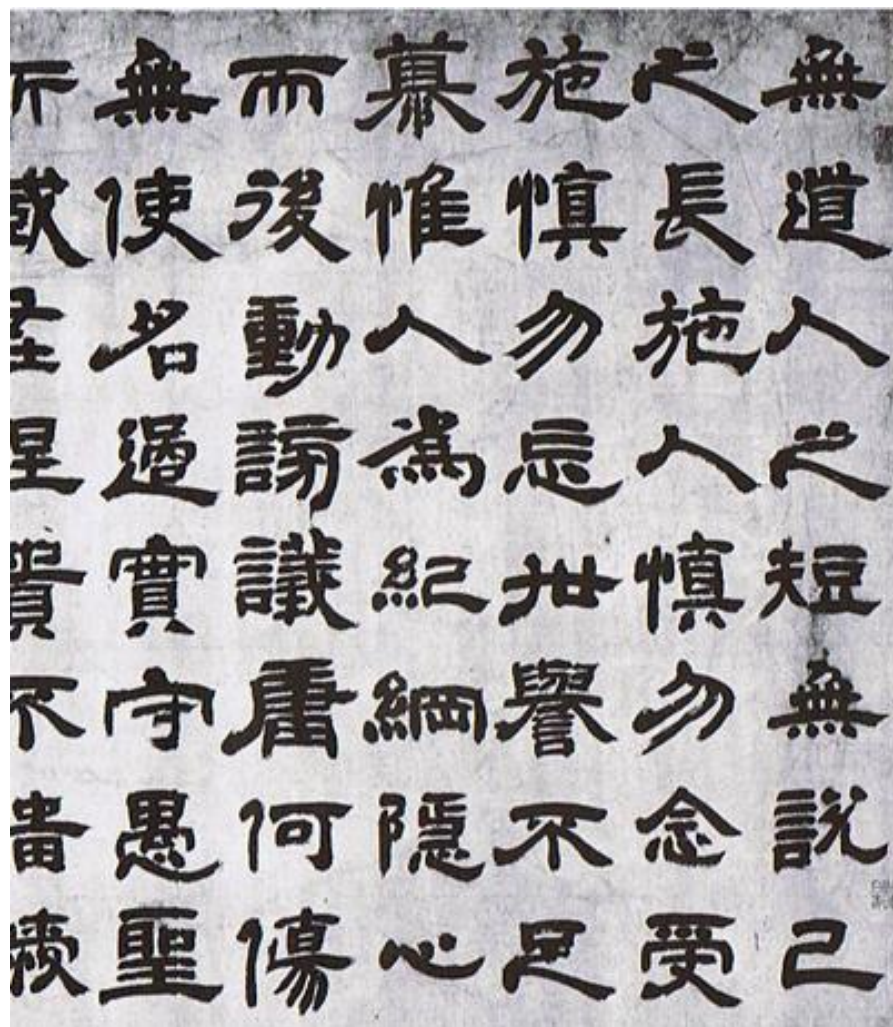 無道人之短無說己
之長施人慎勿念受
施慎勿忘世譽不足
慕惟人為紀綱隱心
而後動謗議庸何傷
無使名過實守愚聖
所臧在涅貴不